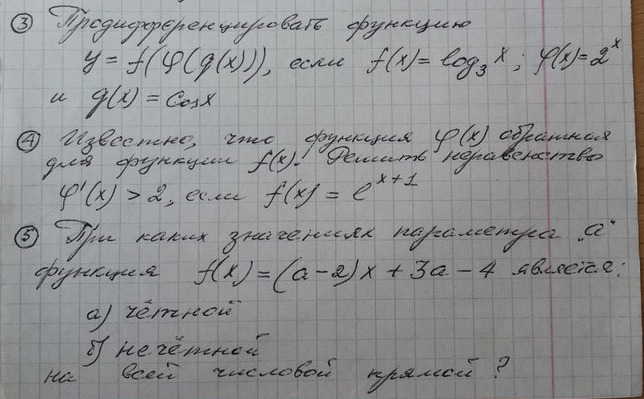 ③ Продифференцировать функцию
y = f(φ(g(x))), если f(x) = log₃ x; φ(x) = 2ˣ
и g(x) = cos x
④ Известно, что функция φ(x) обратная
для функции f(x). Решить неравенство
φ'(x) > 2, если f(x) = eˣ⁺¹
⑤ При каких значениях параметра „a“
функция f(x) = (a-2)x + 3a - 4 является:
а) чётной
б) нечётной
на всей числовой прямой?